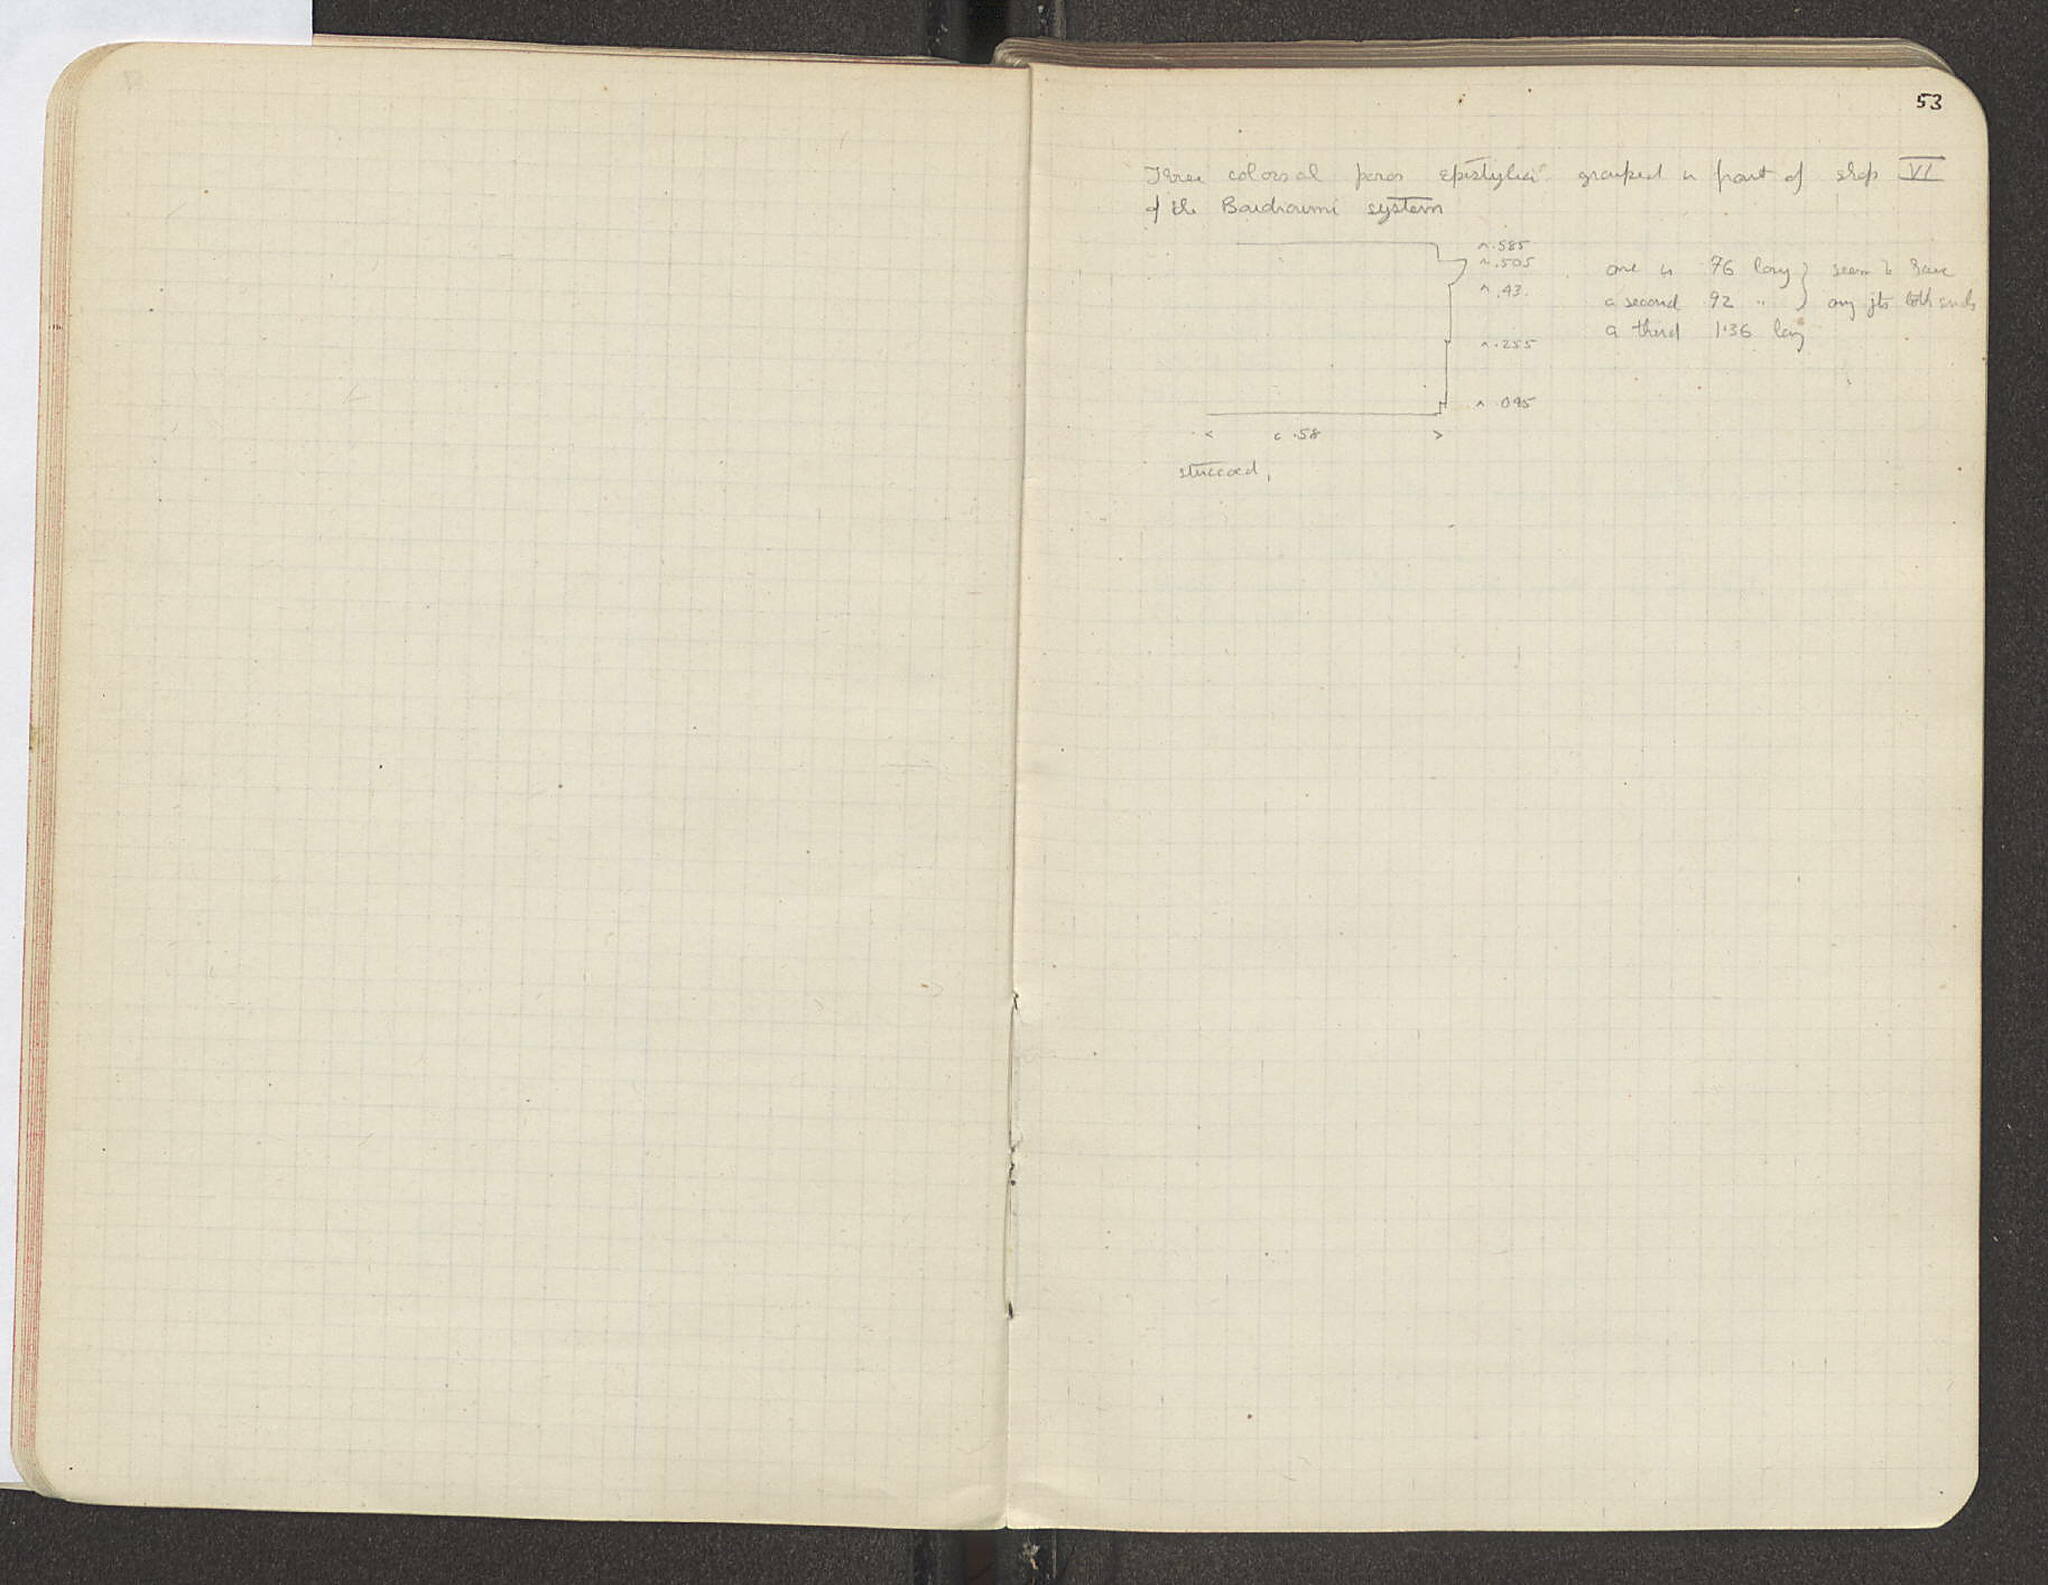 53
Three colossal poros epistylia grouped in front of shop VI
of the Boudroumi system
^ .585
^ .505
^ .43
^ .255
^ .095
one is .76 long } seem to have
a second .92 " } orig jts both ends
a third 1.36 long
< c .58 >
stuccoed.